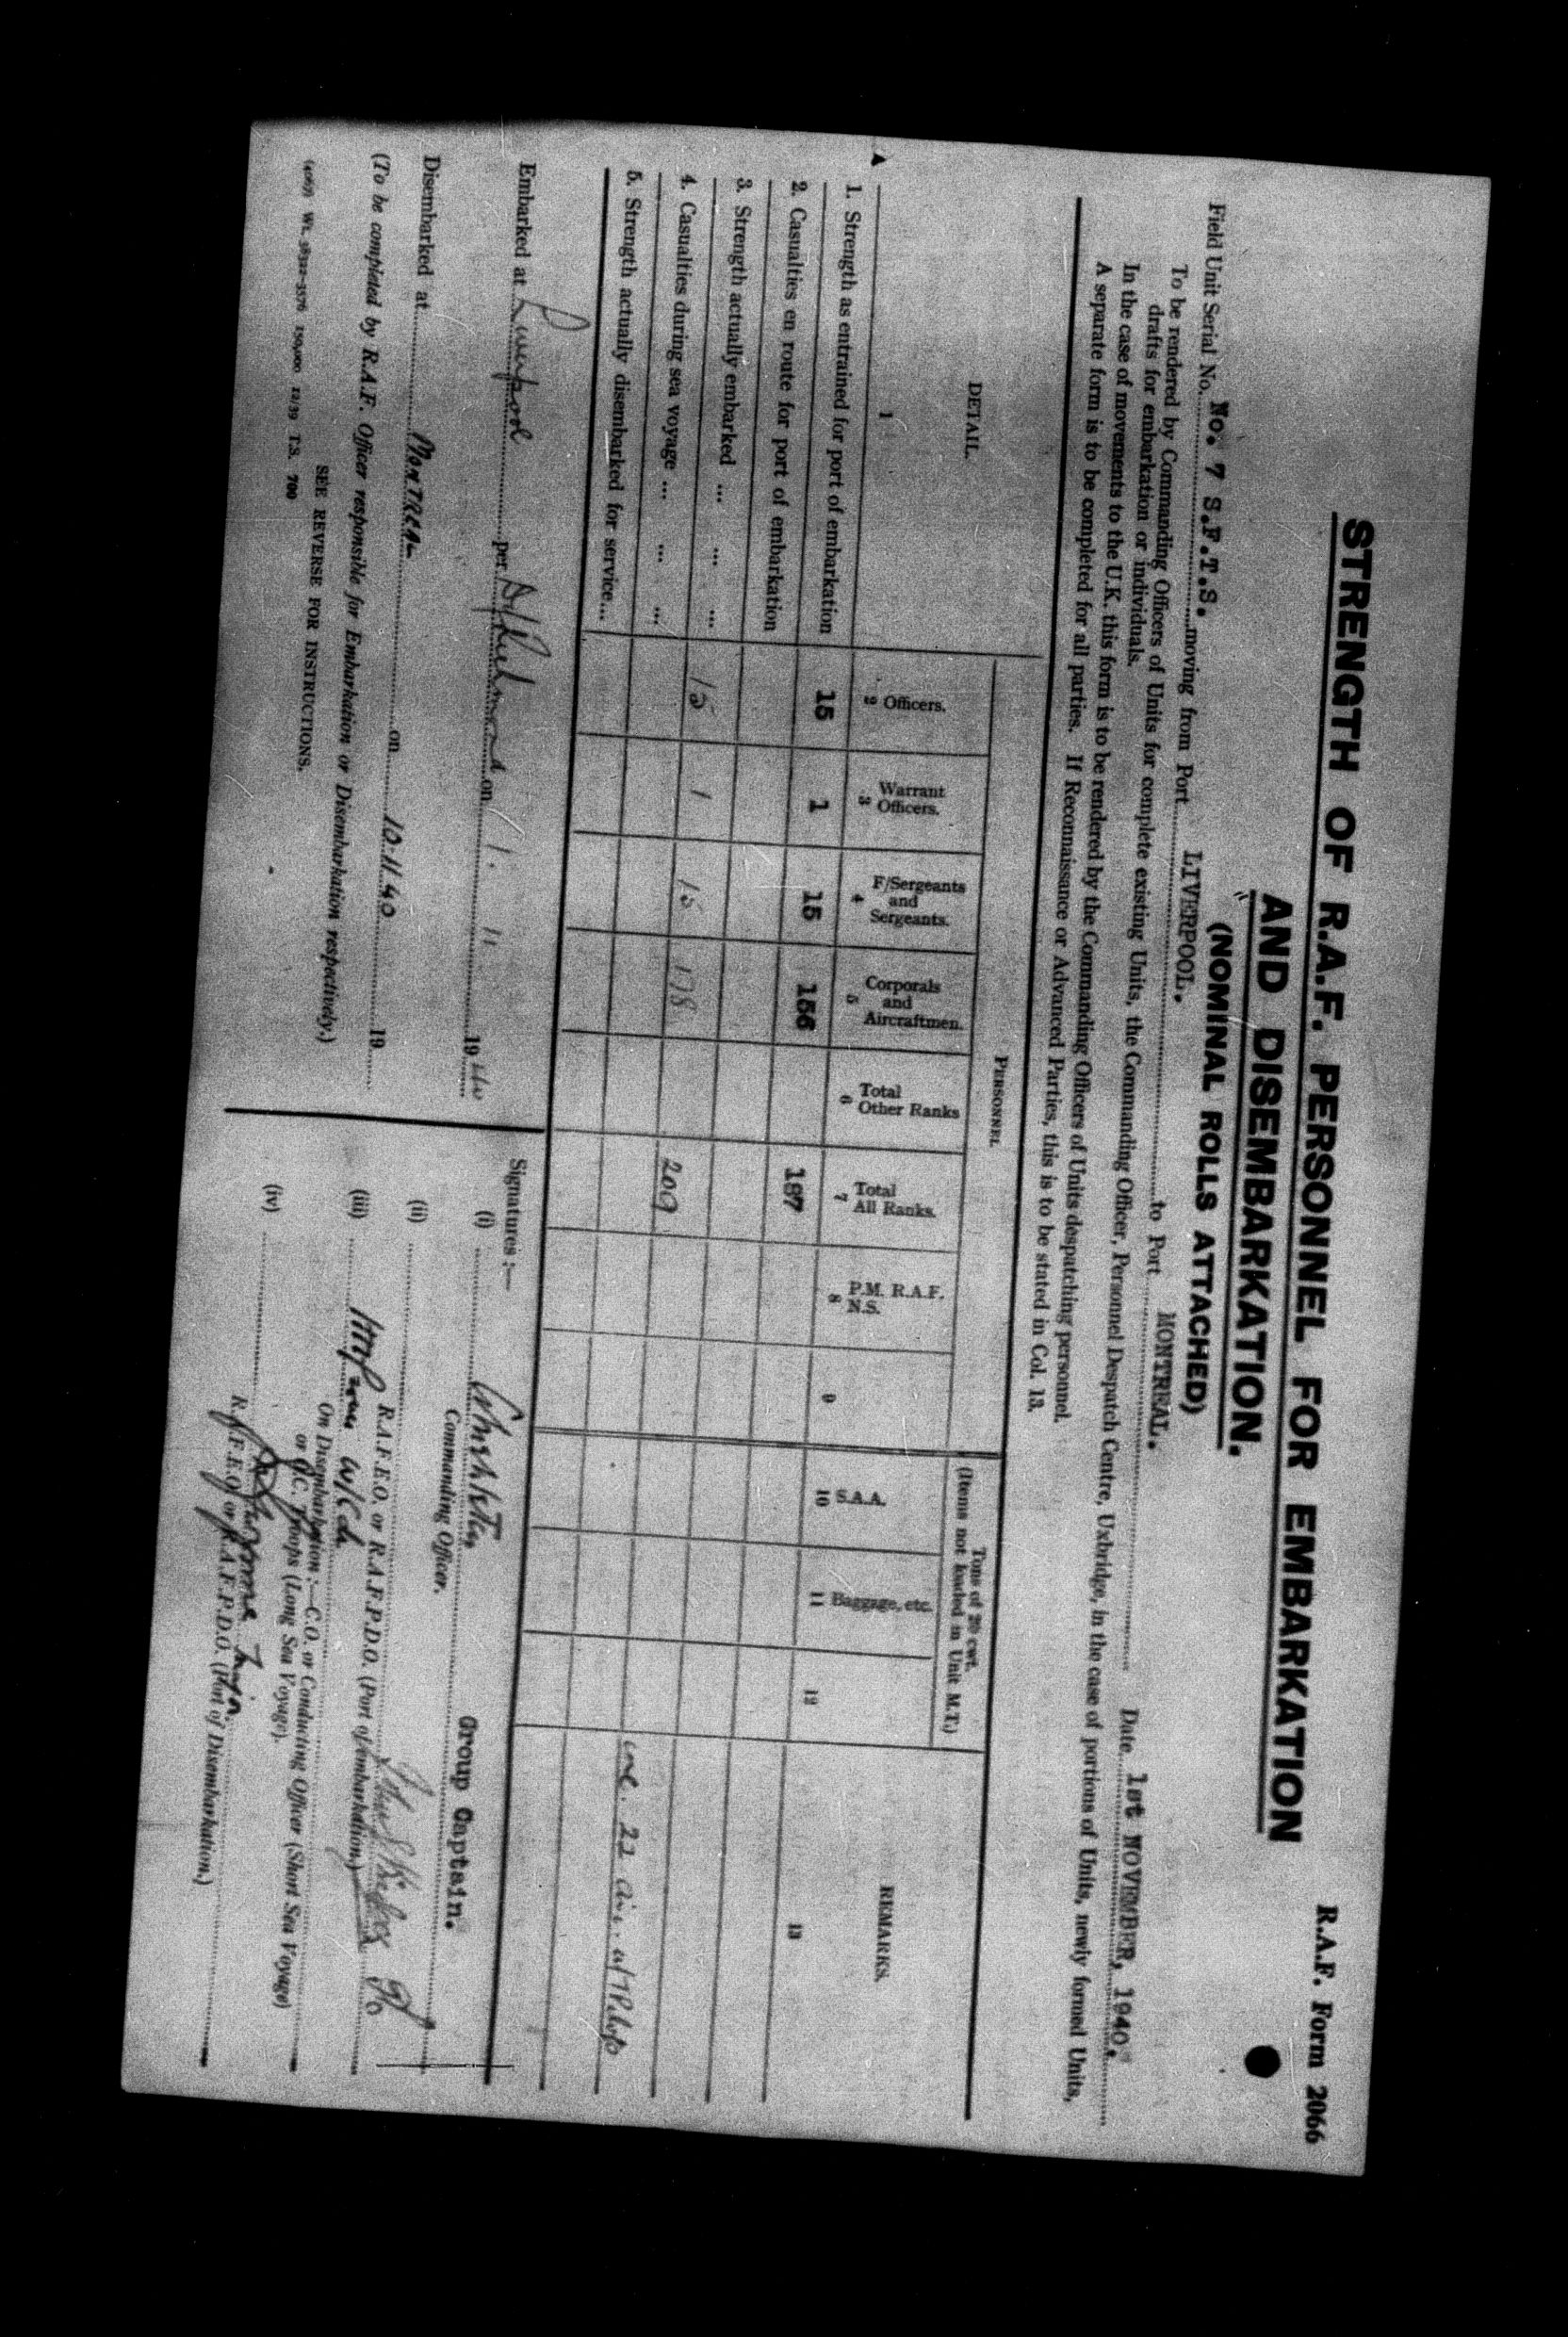 R.A.F. Form 2066
STRENGTH OF R.A.F. PERSONNEL FOR EMBARKATION
AND DISEMBARKATION.
(NOMINAL ROLLS ATTACHED)
Field Unit Serial No. No. 7 S.F.T.S. moving from Port LIVERPOOL. to Port MONTREAL. Date 1st NOVEMBER, 1940.
To be rendered by Commanding Officers of Units for complete existing Units, the Commanding Officer, Personnel Despatch Centre, Uxbridge, in the case of portions of Units, newly formed Units,
drafts for embarkation or individuals.
In the case of movements to the U.K. this form is to be rendered by the Commanding Officers of Units despatching personnel.
A separate form is to be completed for all parties. If Reconnaissance or Advanced Parties, this is to be stated in Col. 13.
PERSONNEL
Tons of 20 cwt.
(Items not loaded in Unit M.T.)
DETAIL. Officers. Warrant Officers. F/Sergeants and Sergeants. Corporals and Aircraftmen. Total Other Ranks Total All Ranks. P.M. R.A.F. N.S. S.A.A. Baggage, etc. REMARKS.
1 2 3 4 5 6 7 8 9 10 11 12 13
1. Strength as entrained for port of embarkation 15 1 15 156 187
2. Casualties en route for port of embarkation
3. Strength actually embarked ... ... ... 15 1 15 178 209
4. Casualties during sea voyage ... ... ... inc. 22
5. Strength actually disembarked for service...
Embarked at Liverpool per on 1. 11 1940
Disembarked at MONTREAL on 10.11.40 19
(To be completed by R.A.F. Officer responsible for Embarkation or Disembarkation respectively.)
SEE REVERSE FOR INSTRUCTIONS.
(4067) Wt. 38322-3576 150,000 12/39 T.S. 700
Signatures :—
(i) Group Captain.
Commanding Officer.
(ii)
R.A.F.E.O. or R.A.F.P.D.O. (Port of embarkation.)
(iii) W/Cdr
On Disembarkation :—C.O. or Conducting Officer (Short Sea Voyage)
or O.C. Troops (Long Sea Voyage).
(iv)
R.A.F.E.O. or R.A.F.P.D.O. (Port of Disembarkation.)